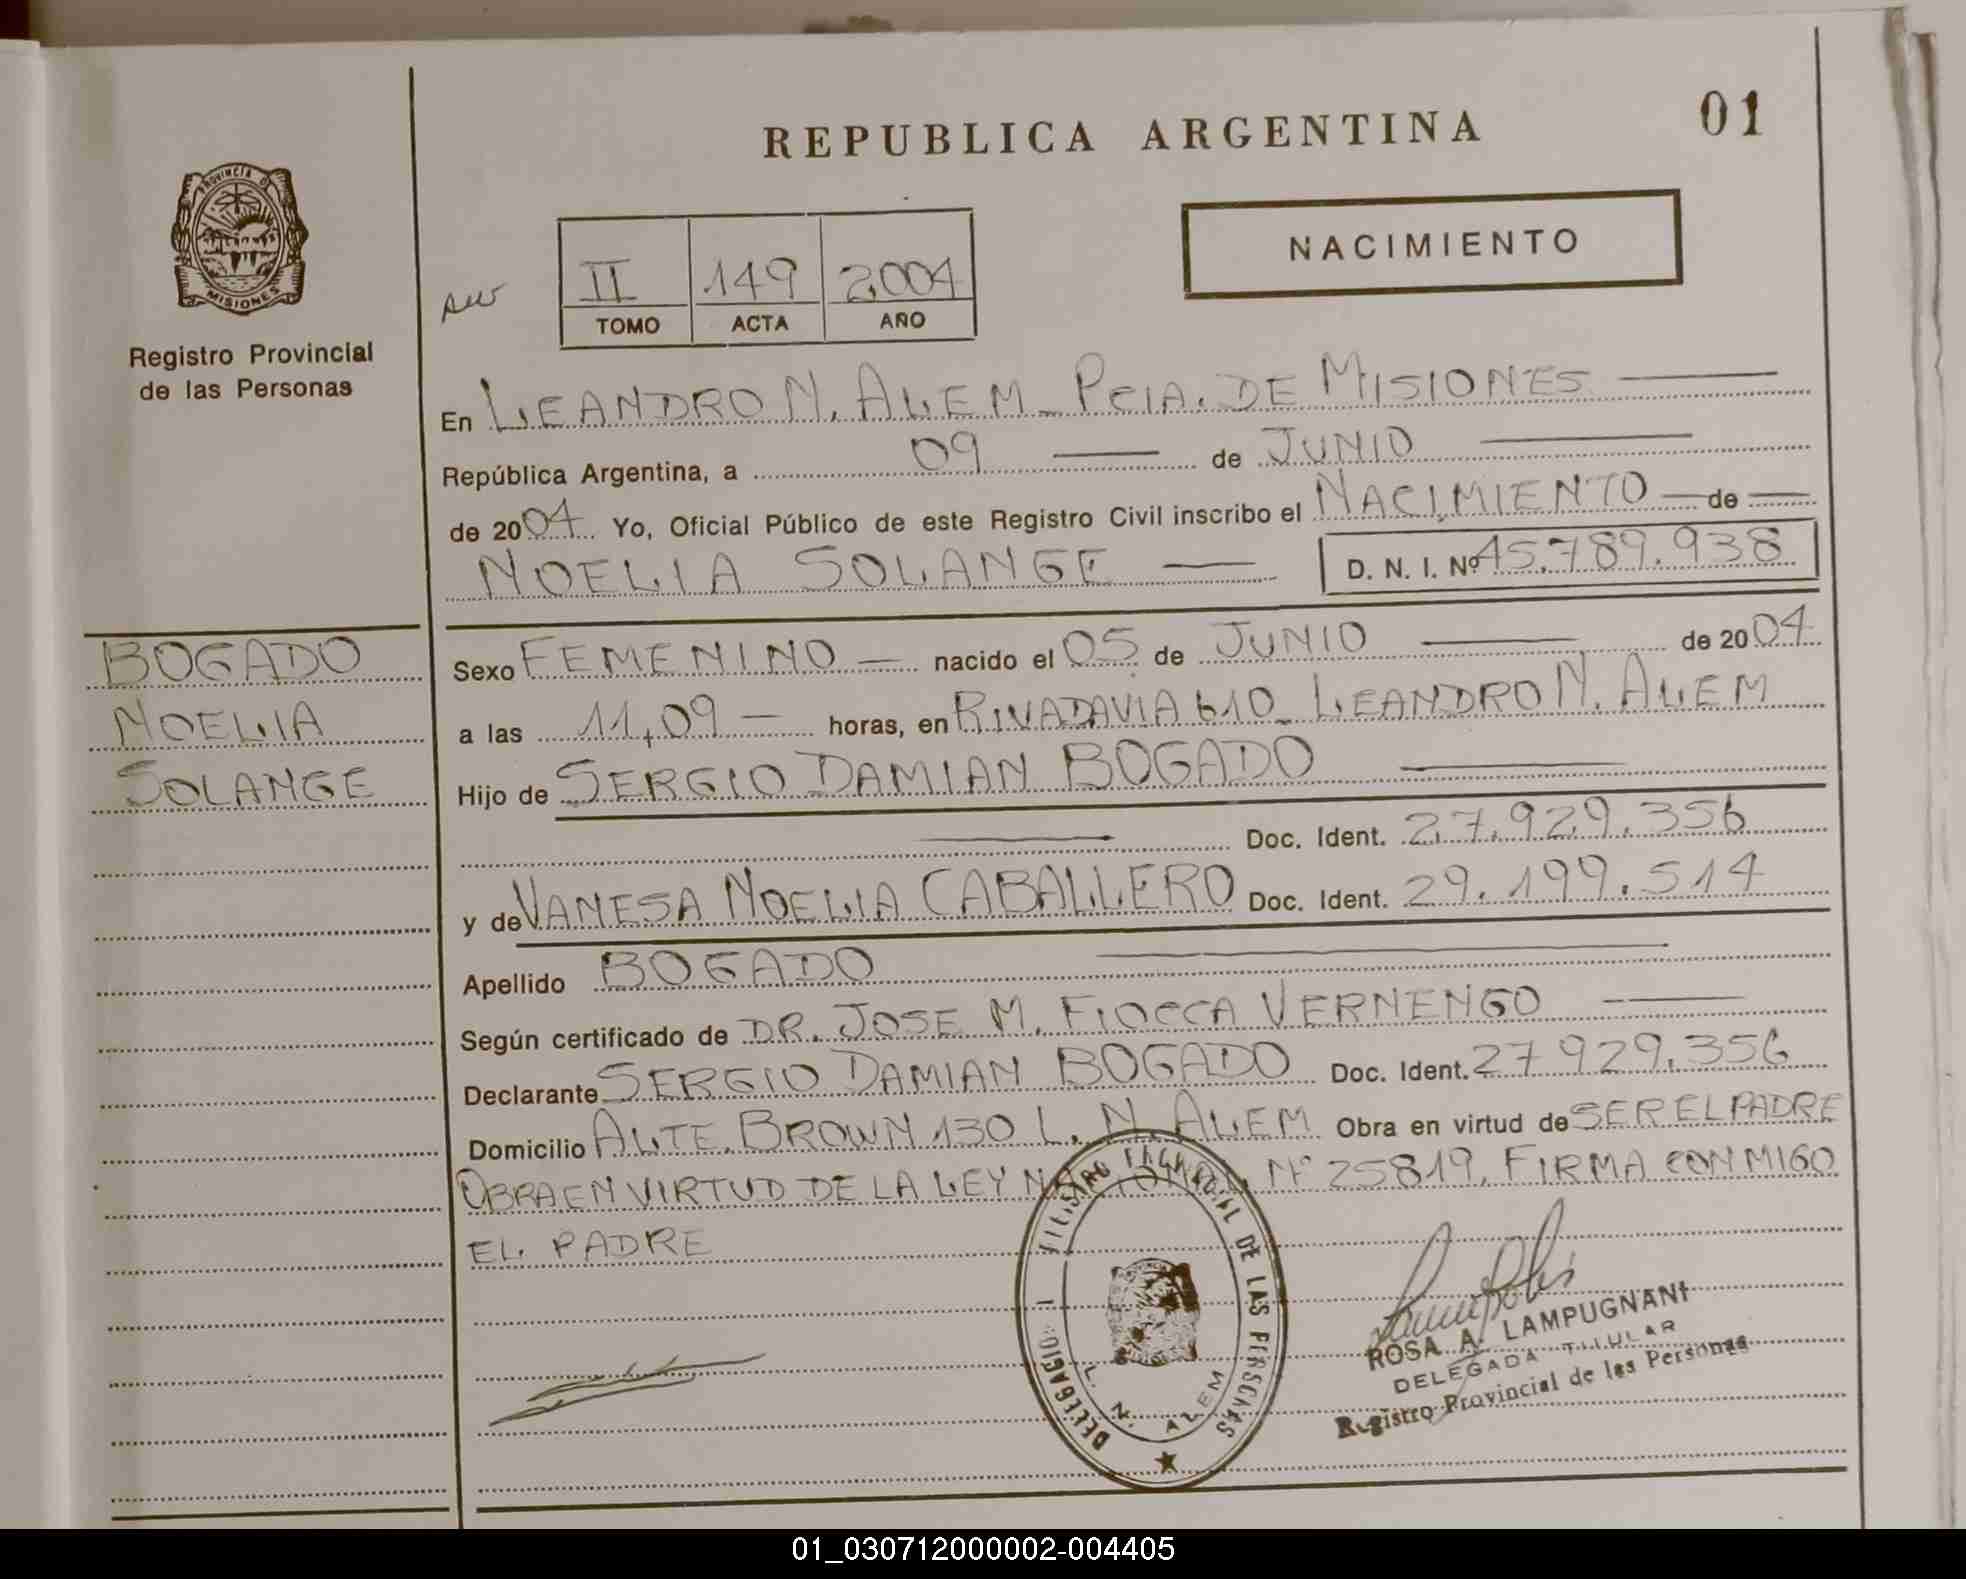 REPUBLICA ARGENTINA
01
PROVINCIA DE
MISIONES
Registro Provincial
de las Personas
NACIMIENTO
II 149 2.004
TOMO ACTA AÑO
En LEANDRO N. ALEM - PCIA. DE MISIONES
República Argentina, a 09 de JUNIO
de 2004 Yo, Oficial Público de este Registro Civil inscribo el NACIMIENTO de
NOELIA SOLANGE D. N. I. Nº 45.789.938
BOGADO
NOELIA
SOLANGE
Sexo FEMENINO nacido el 05 de JUNIO de 2004
a las 11,09 horas, en RIVADAVIA 610 - LEANDRO N. ALEM
Hijo de SERGIO DAMIAN BOGADO
Doc. Ident. 27.929.356
y de VANESA NOELIA CABALLERO Doc. Ident. 29.199.514
Apellido BOGADO
Según certificado de DR. JOSE M. FIOCCA VERNENGO
Declarante SERGIO DAMIAN BOGADO Doc. Ident. 27 929.356
Domicilio ALTE. BROWN 130 L. N. ALEM Obra en virtud de SER EL PADRE
OBRA EN VIRTUD DE LA LEY NACIONAL Nº 25819, FIRMA CONMIGO
EL PADRE
DE LAS PERSONAS
L. N. ALEM
ROSA A. LAMPUGNANI
DELEGADA TITULAR
Registro Provincial de las Personas
01_030712000002-004405